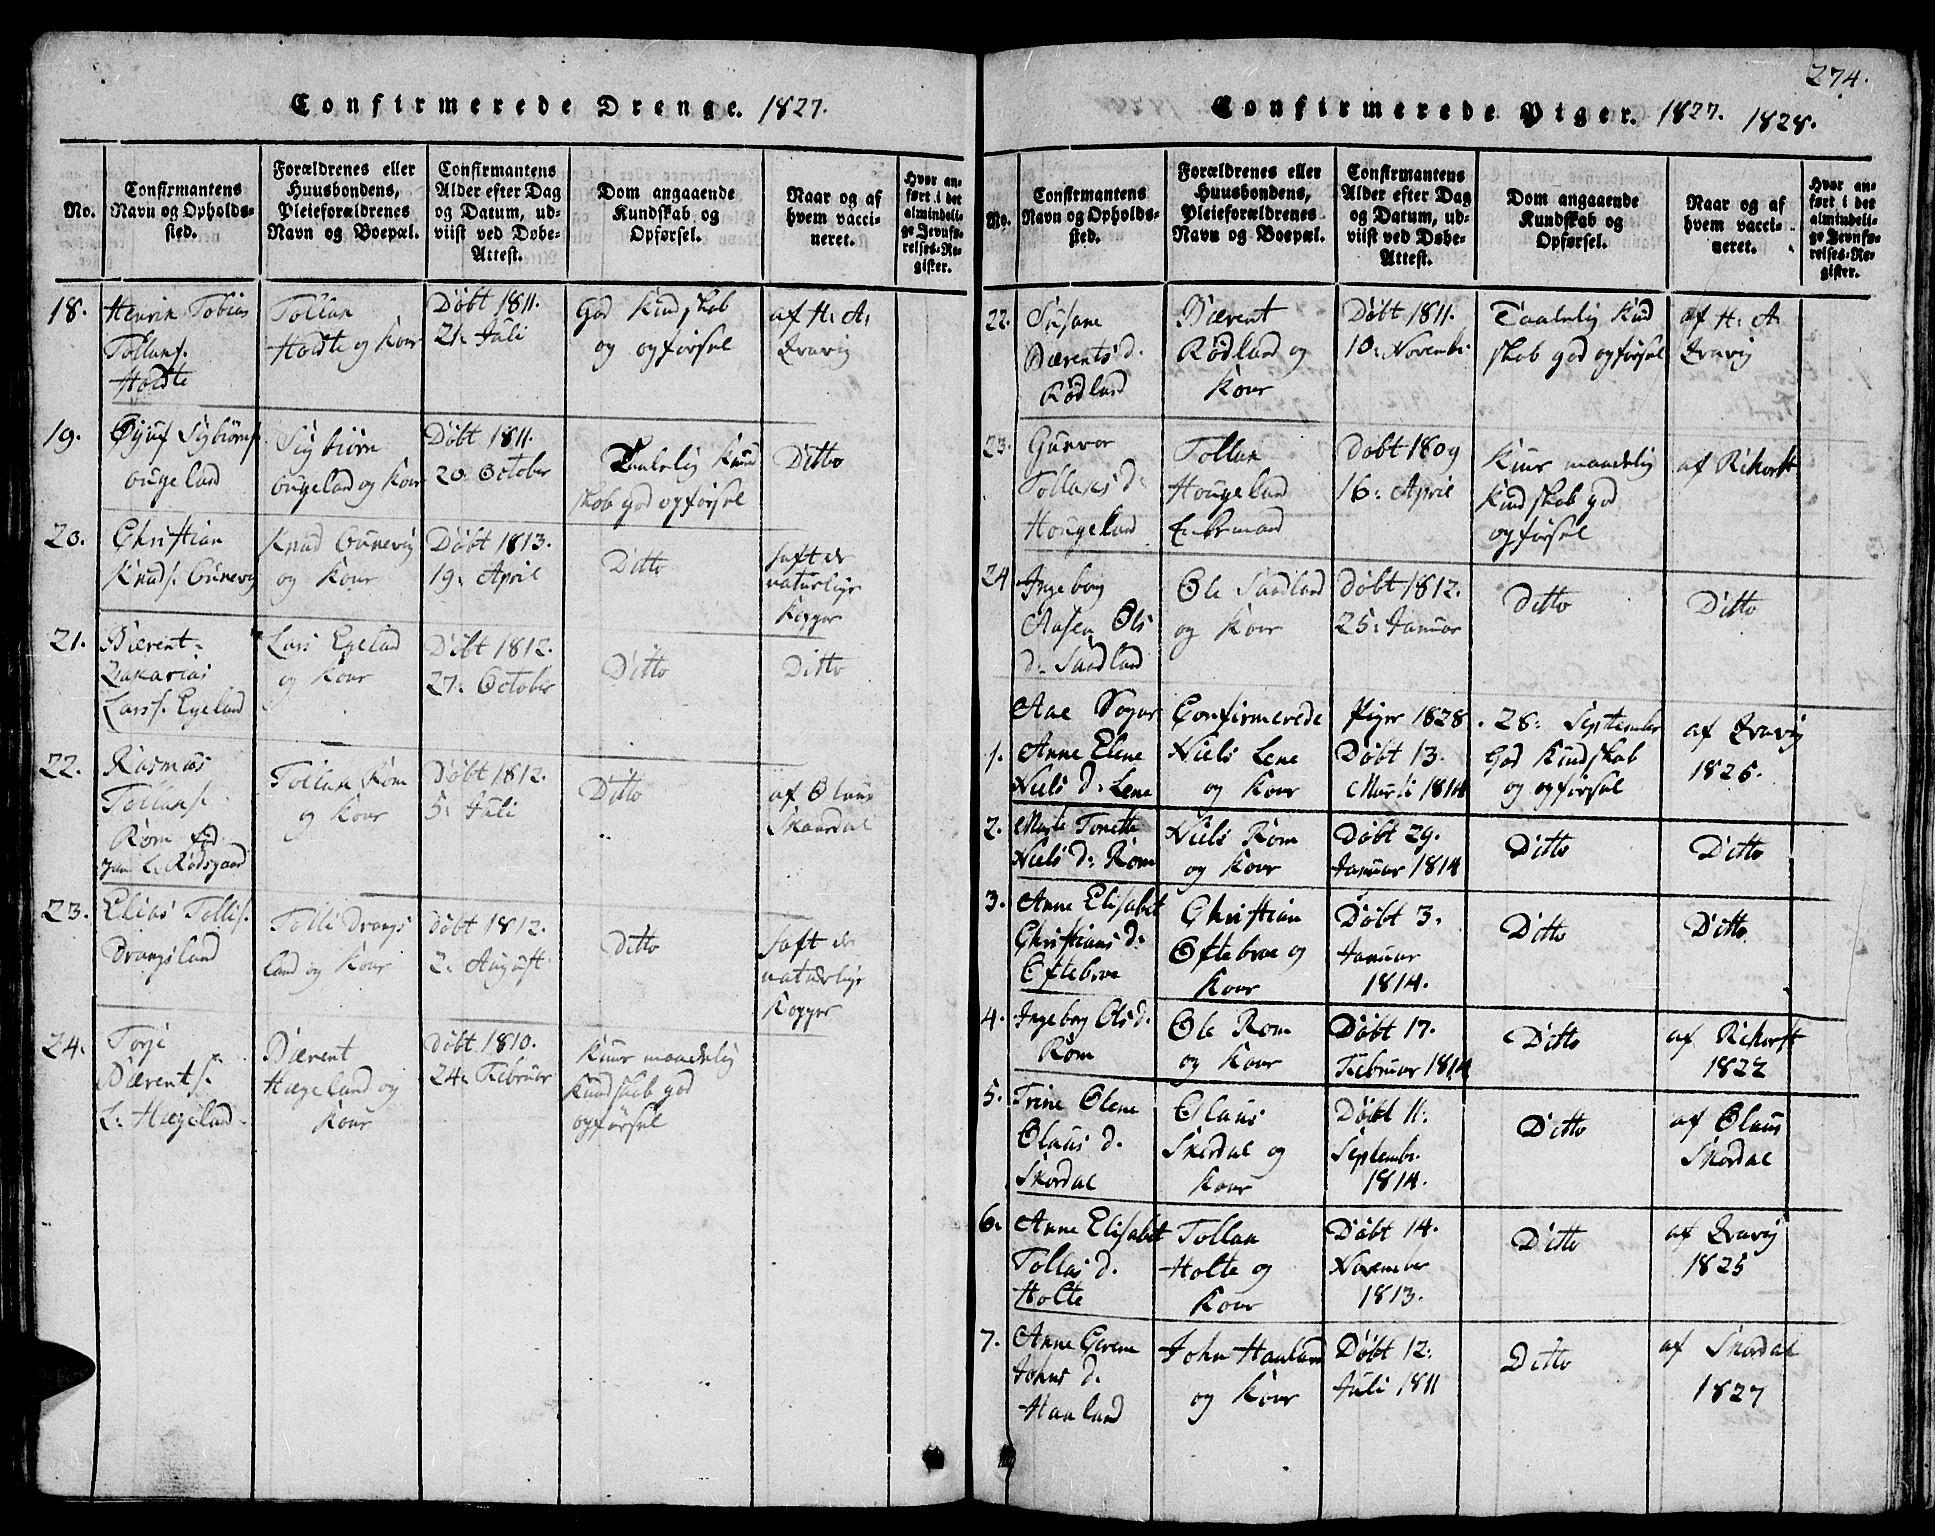 Confirmerede Drenge. 1827.
No.
Confirmantens Navn og Opholds-sted.
Forældrenes eller Huusbondens, Pleieforældrenes Navn og Boepæl.
Confirmantens Alder efter Dag og Datum, ud-viist ved Døbe-Attest.
Dom angaaende Kundskab og Opførsel.
Naar og af hvem vacci-neret.
Hvor an-ført i det almindeli-ge Jevnfø-relses-Re-gister.
18.
Henrik Tobias
Tollaks.
Holdte
Tollak
Holdte og Kone
Døbt 1811.
21. Juli
God Kundskab
og opførsel
af H: A:
Qvavig
19.
Sigbiørns.
ougeland
Sigbiørn
ougeland og Kone
Døbt 1811.
20. October
Taalelig Kund
skab god opførsel
Ditto
20.
Christian
Knuds. Gunevig
Knud Gunevig
og Kone
Døbt 1813.
19. April
Ditto
haft de
naturlige
Kopper
21.
Bærent
Zakarias
Larss. Egeland
Lars Egeland
og Kone
Døbt 1812.
27. October
Ditto
Ditto
22.
Rasmus
Tollaks.
Røm
Rødsgaard
Tollak Røm
og Kone
Døbt 1812.
5. Juli
Ditto
af Olaus
Skaardal
23.
Elias Tollis.
Drangsland
Tolli Drangs
land og Kone
Døbt 1812.
2. August
Ditto
haft de
naturlige
Kopper
24.
Torje
Bærents.
L. Hægeland
Bærent
Hægeland og
Kone
Døbt 1810.
24. Februar
Kuns maadelig
Kundskab god
opførsel
274.
Confirmerede Piger. 1827. 1828.
No.
Confirmantens Navn og Opholds-sted.
Forældrenes eller Huusbondens, Pleieforældrenes Navn og Boepæl.
Confirmantens Alder efter Dag og Datum, ud-viist ved Døbe-Attest.
Dom angaaende Kundskab og Opførsel.
Naar og af hvem vacci-neret.
Hvor an-ført i det almindeli-ge Jevnfø-relses-Re-gister.
22.
Susane
Bærents d.
Rødland
Bærent
Rødland og
Kone
Døbt 1811.
10. Novembr.
Taalelig Kund
skab god opførsel
af H: A
Qvavig
23.
Gunvor
Tollaks d.
Hougeland
Tollak
Hougeland
Enkemand
Døbt 1809
16. April
Kuns maadelig
Kundskab god
opførsel
af Rikorft
24
Ingeborg
Aasen Ols
d. Sandland
Ole Sandland
og Kone
Døbt 1812.
25. Januar
Ditto
Ditto
Aae Sogns Confirmerede Piger 1828. 28. September
1.
Anne Elene
Niels d. Lene
Niels Lene
og Kone
Døbt 13.
Marti 1814
God Kundskab
og opførsel
af Qvavig
1825.
2.
Marte Tonette
Niels d: Røm
Niels Røm
og Kone
Døbt 29.
Januar 1814
Ditto
Ditto
3.
Anne Elisabet
Christians d.
Oftebroe
Christian
Oftebroe og
Kone
Døbt 3.
Januar
1814.
Ditto
Ditto
4.
Ingeborg Ols d.
Røm
Ole Røm
og Kone
Døbt 17.
Februar 1814
Ditto
af Rikorft
1822
5.
Trine Olene
Olaus d.
Skordal
Olaus
Skordal og
Kone
Døbt 11.
Septembr.
1814.
Ditto
af Olaus
Skordal
6.
Anne Elisabet
Tollas d.
Holte
Tollak
Holte og
Kone
Døbt 14.
November
1813.
Ditto
af Qvavig
1825
7.
Anne Gerene
Johns d.
Haaland
John Haaland
og Kone
Døbt 12.
Juli 1811
Ditto
af Skordal
1827